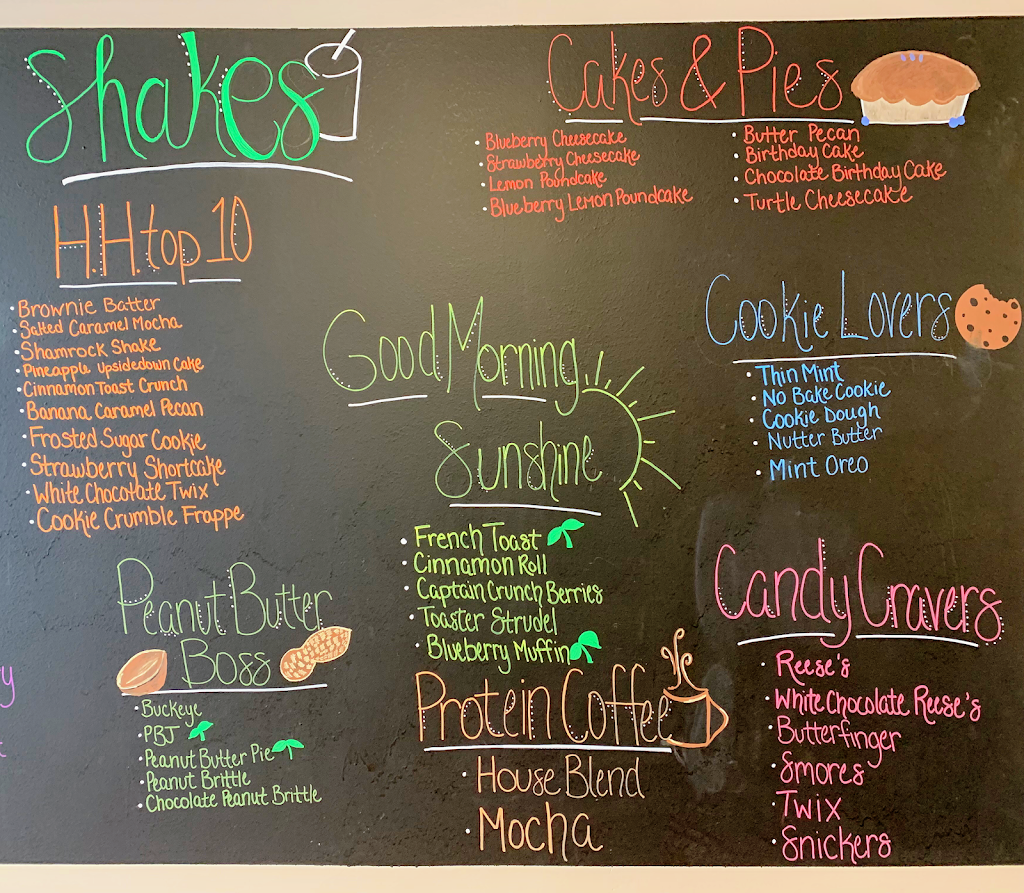 Shakes
H.H. top 10
Brownie Batter
Salted Caramel Mocha
Shamrock Shake
Pineapple Upsidedown Cake
Cinnamon Toast Crunch
Banana Caramel Pecan
Frosted Sugar Cookie
Strawberry Shortcake
White Chocolate Twix
Cookie Crumble Frappe
Peanut Butter
Boss
Buckeye
PBJ
Peanut Butter Pie
Peanut Brittle
Chocolate Peanut Brittle
Good Morning
Sunshine
French Toast
Cinnamon Roll
Captain Crunch Berries
Toaster Strudel
Blueberry Muffin
Protein Coffee
House Blend
Mocha
Cakes & Pies
Blueberry Cheesecake
Strawberry Cheesecake
Lemon Poundcake
Blueberry Lemon Poundcake
Butter Pecan
Birthday Cake
Chocolate Birthday Cake
Turtle Cheesecake
Cookie Lovers
Thin Mint
No Bake Cookie
Cookie Dough
Nutter Butter
Mint Oreo
Candy Cravers
Reese's
White Chocolate Reese's
Butterfinger
Smores
Twix
Snickers